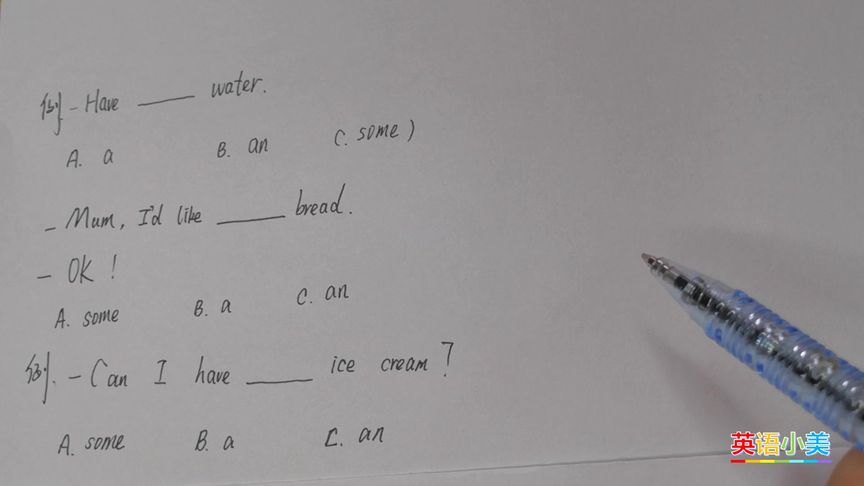 例 - Have ____ water.
A. a B. an C. some )
- Mum, I'd like ____ bread.
- OK !
A. some B. a C. an
例. - Can I have ____ ice cream ?
A. some B. a C. an
英语小美